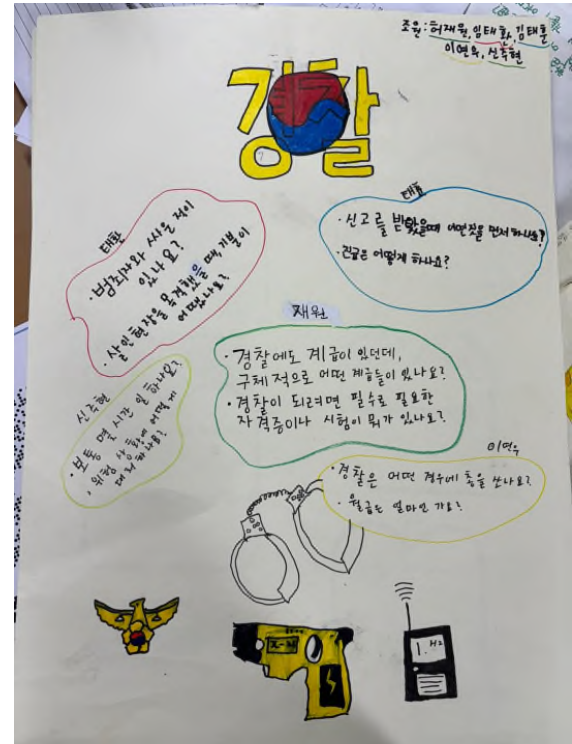 조원: 허재원, 임태환, 김태훈
이연우, 신주현
경찰
태환
· 범죄자와 싸운 적이
있나요?
· 살인현장을 목격했을 때, 기분이
어땠나요?
태훈
· 신고를 받았을때 어떤것을 먼저 하나요?
· 진급은 어떻게 하나요?
재원
· 경찰에도 계급이 있던데,
구체적으로 어떤 계급들이 있나요?
· 경찰이 되려면 필수로 필요한
자격증이나 시험이 뭐가 있나요?
신주현
· 보통 몇 시간 일 하나요?
· 위험 상황에 어떻게
대처하나요?
이연우
· 경찰은 어떤 경우에 총을 쏘나요?
· 월급은 얼마인 가요?